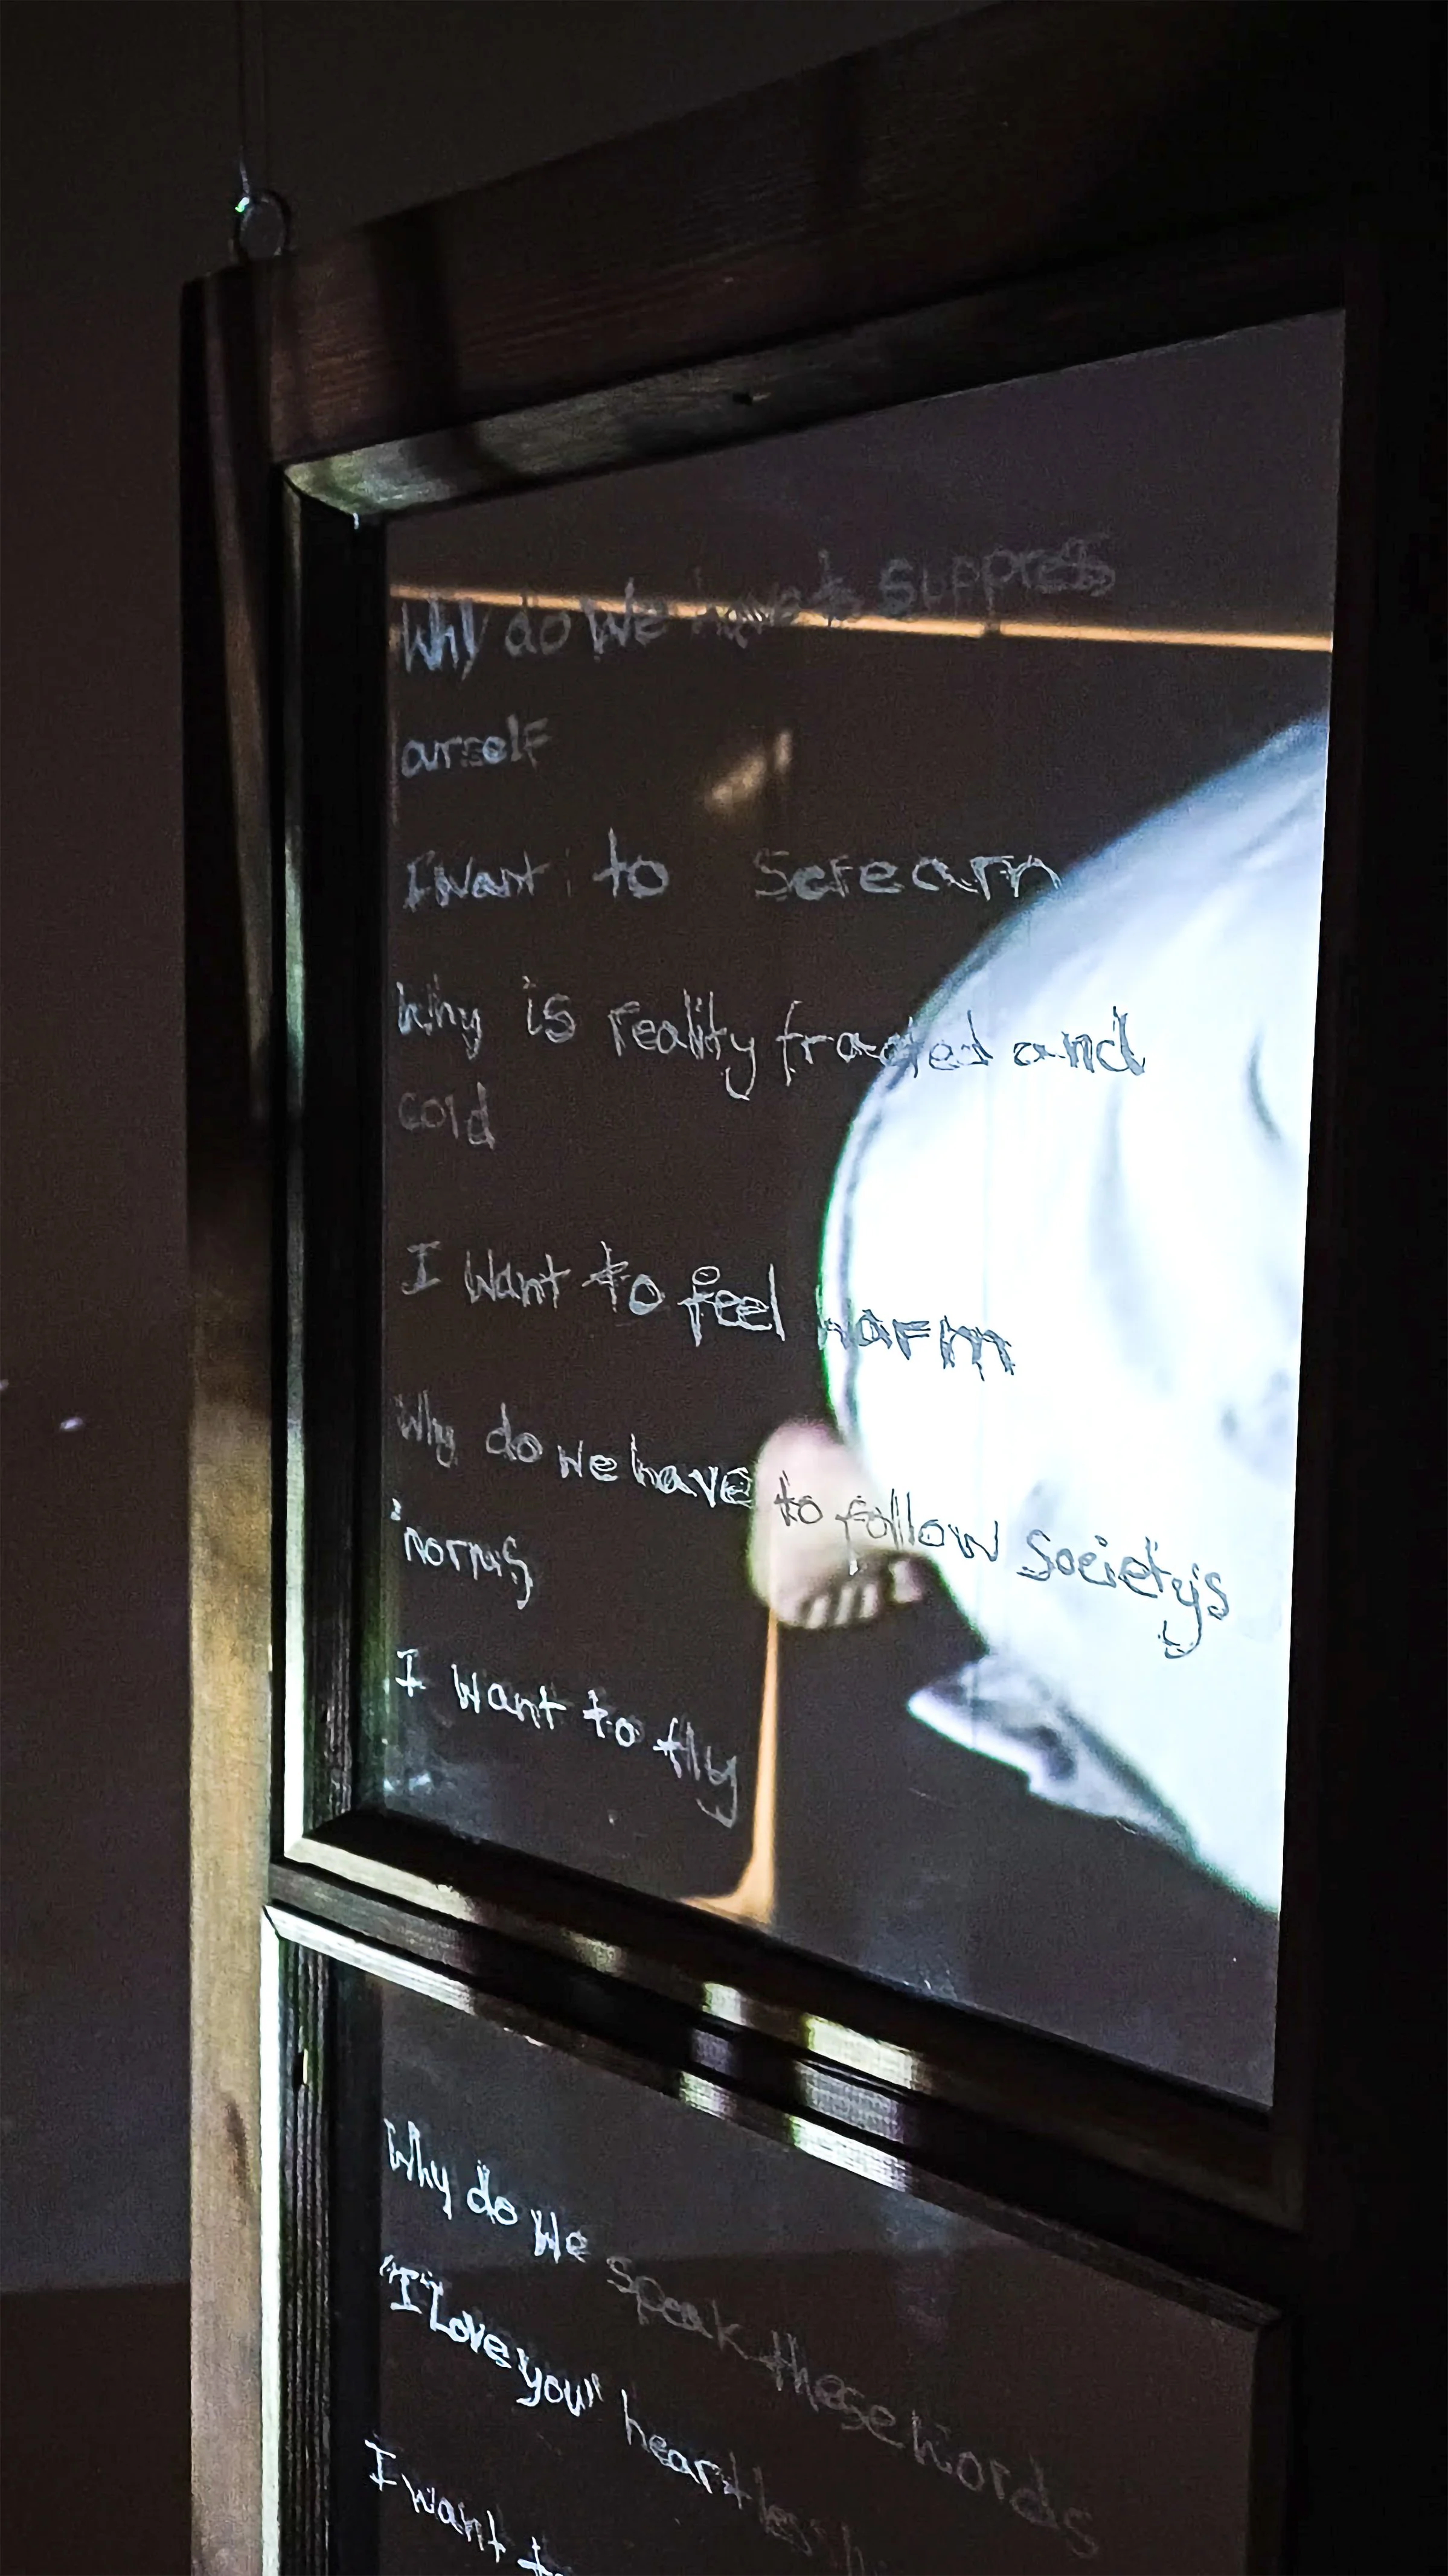 Why do We have to suppress
ourself
I want to Scream
Why is reality and
cold
I want to feel warm
Why do we have to follow Society's
norms
I want to fly
Why do We speak these words
"I Love you" heartless
I want to